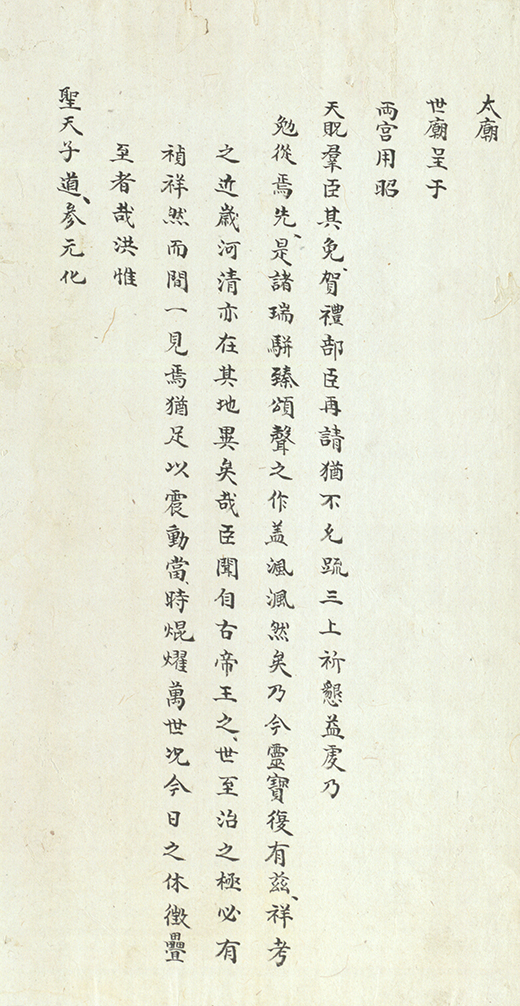 太廟
世廟呈于
兩宮用昭
天貺羣臣其免賀禮部臣再請猶不允疏三上祈懇益虔乃
勉從焉先是諸瑞駢臻頌聲之作盖渢渢然矣乃今靈寶復有茲祥考
之近歲河清亦在其地異矣哉臣聞自古帝王之世至治之極必有
禎祥然而間一見焉猶足以震動當時焜燿萬世况今日之休徵疊
至者哉洪惟
聖天子道參元化